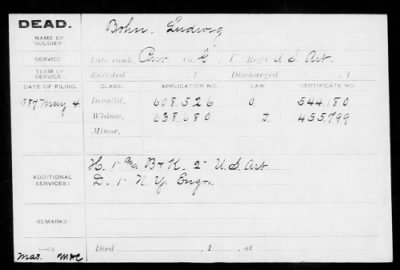 DEAD.
NAME OF SOLDIER:
Bohn, Ludwig
SERVICE:
Late rank, Priv Co. G, 1 Reg't U.S. Art.
TERM OF SERVICE:
Enlisted , 1 Discharged , 1
DATE OF FILING. CLASS. APPLICATION NO. LAW. CERTIFICATE NO.
1887 May 4 Invalid, 608.526 O 544.180
Widow, 638.680 J 455.799
Minor,
ADDITIONAL SERVICES:
H. 1 & K. 2 U.S. Art
D. 1 N.Y. Engr.
REMARKS:
Died , 1 , at